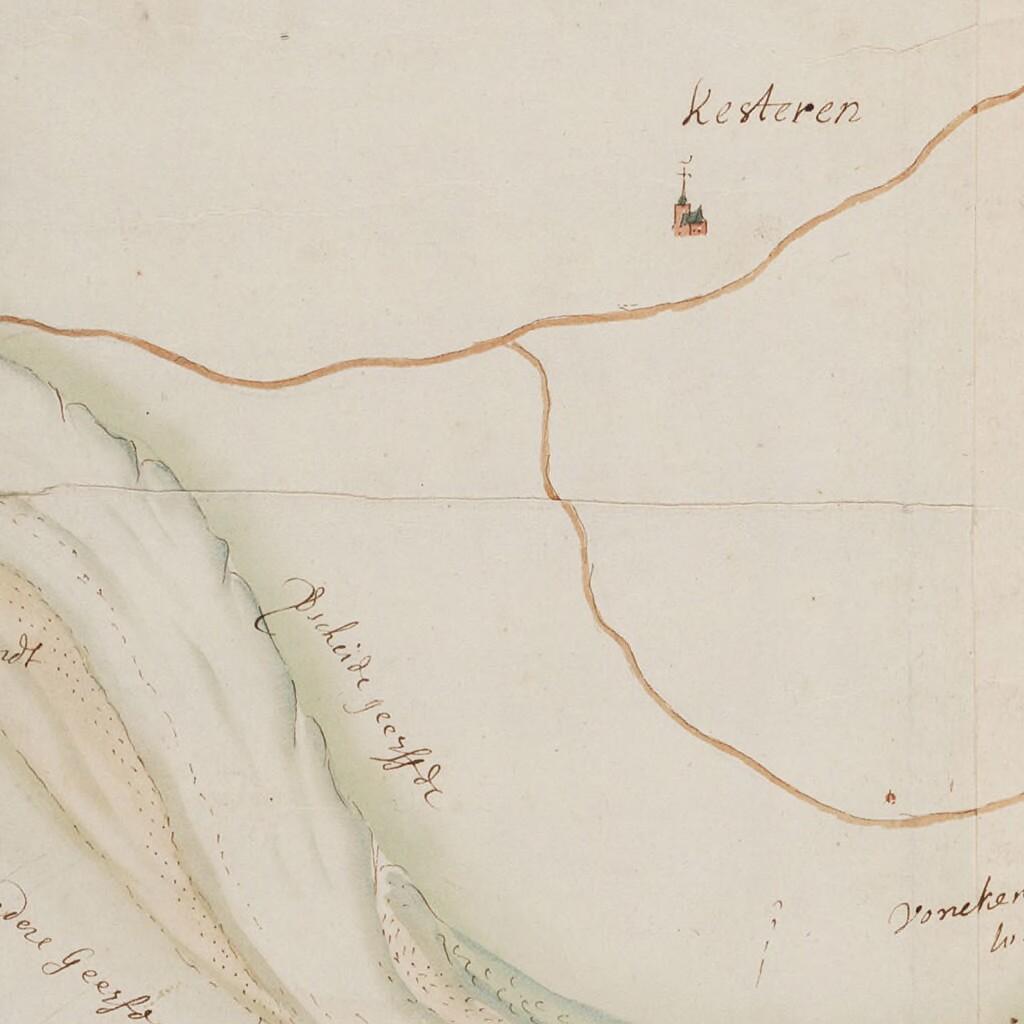 Kesteren
Pscheide geerffde
ndt
dere Geerfd
Voneken